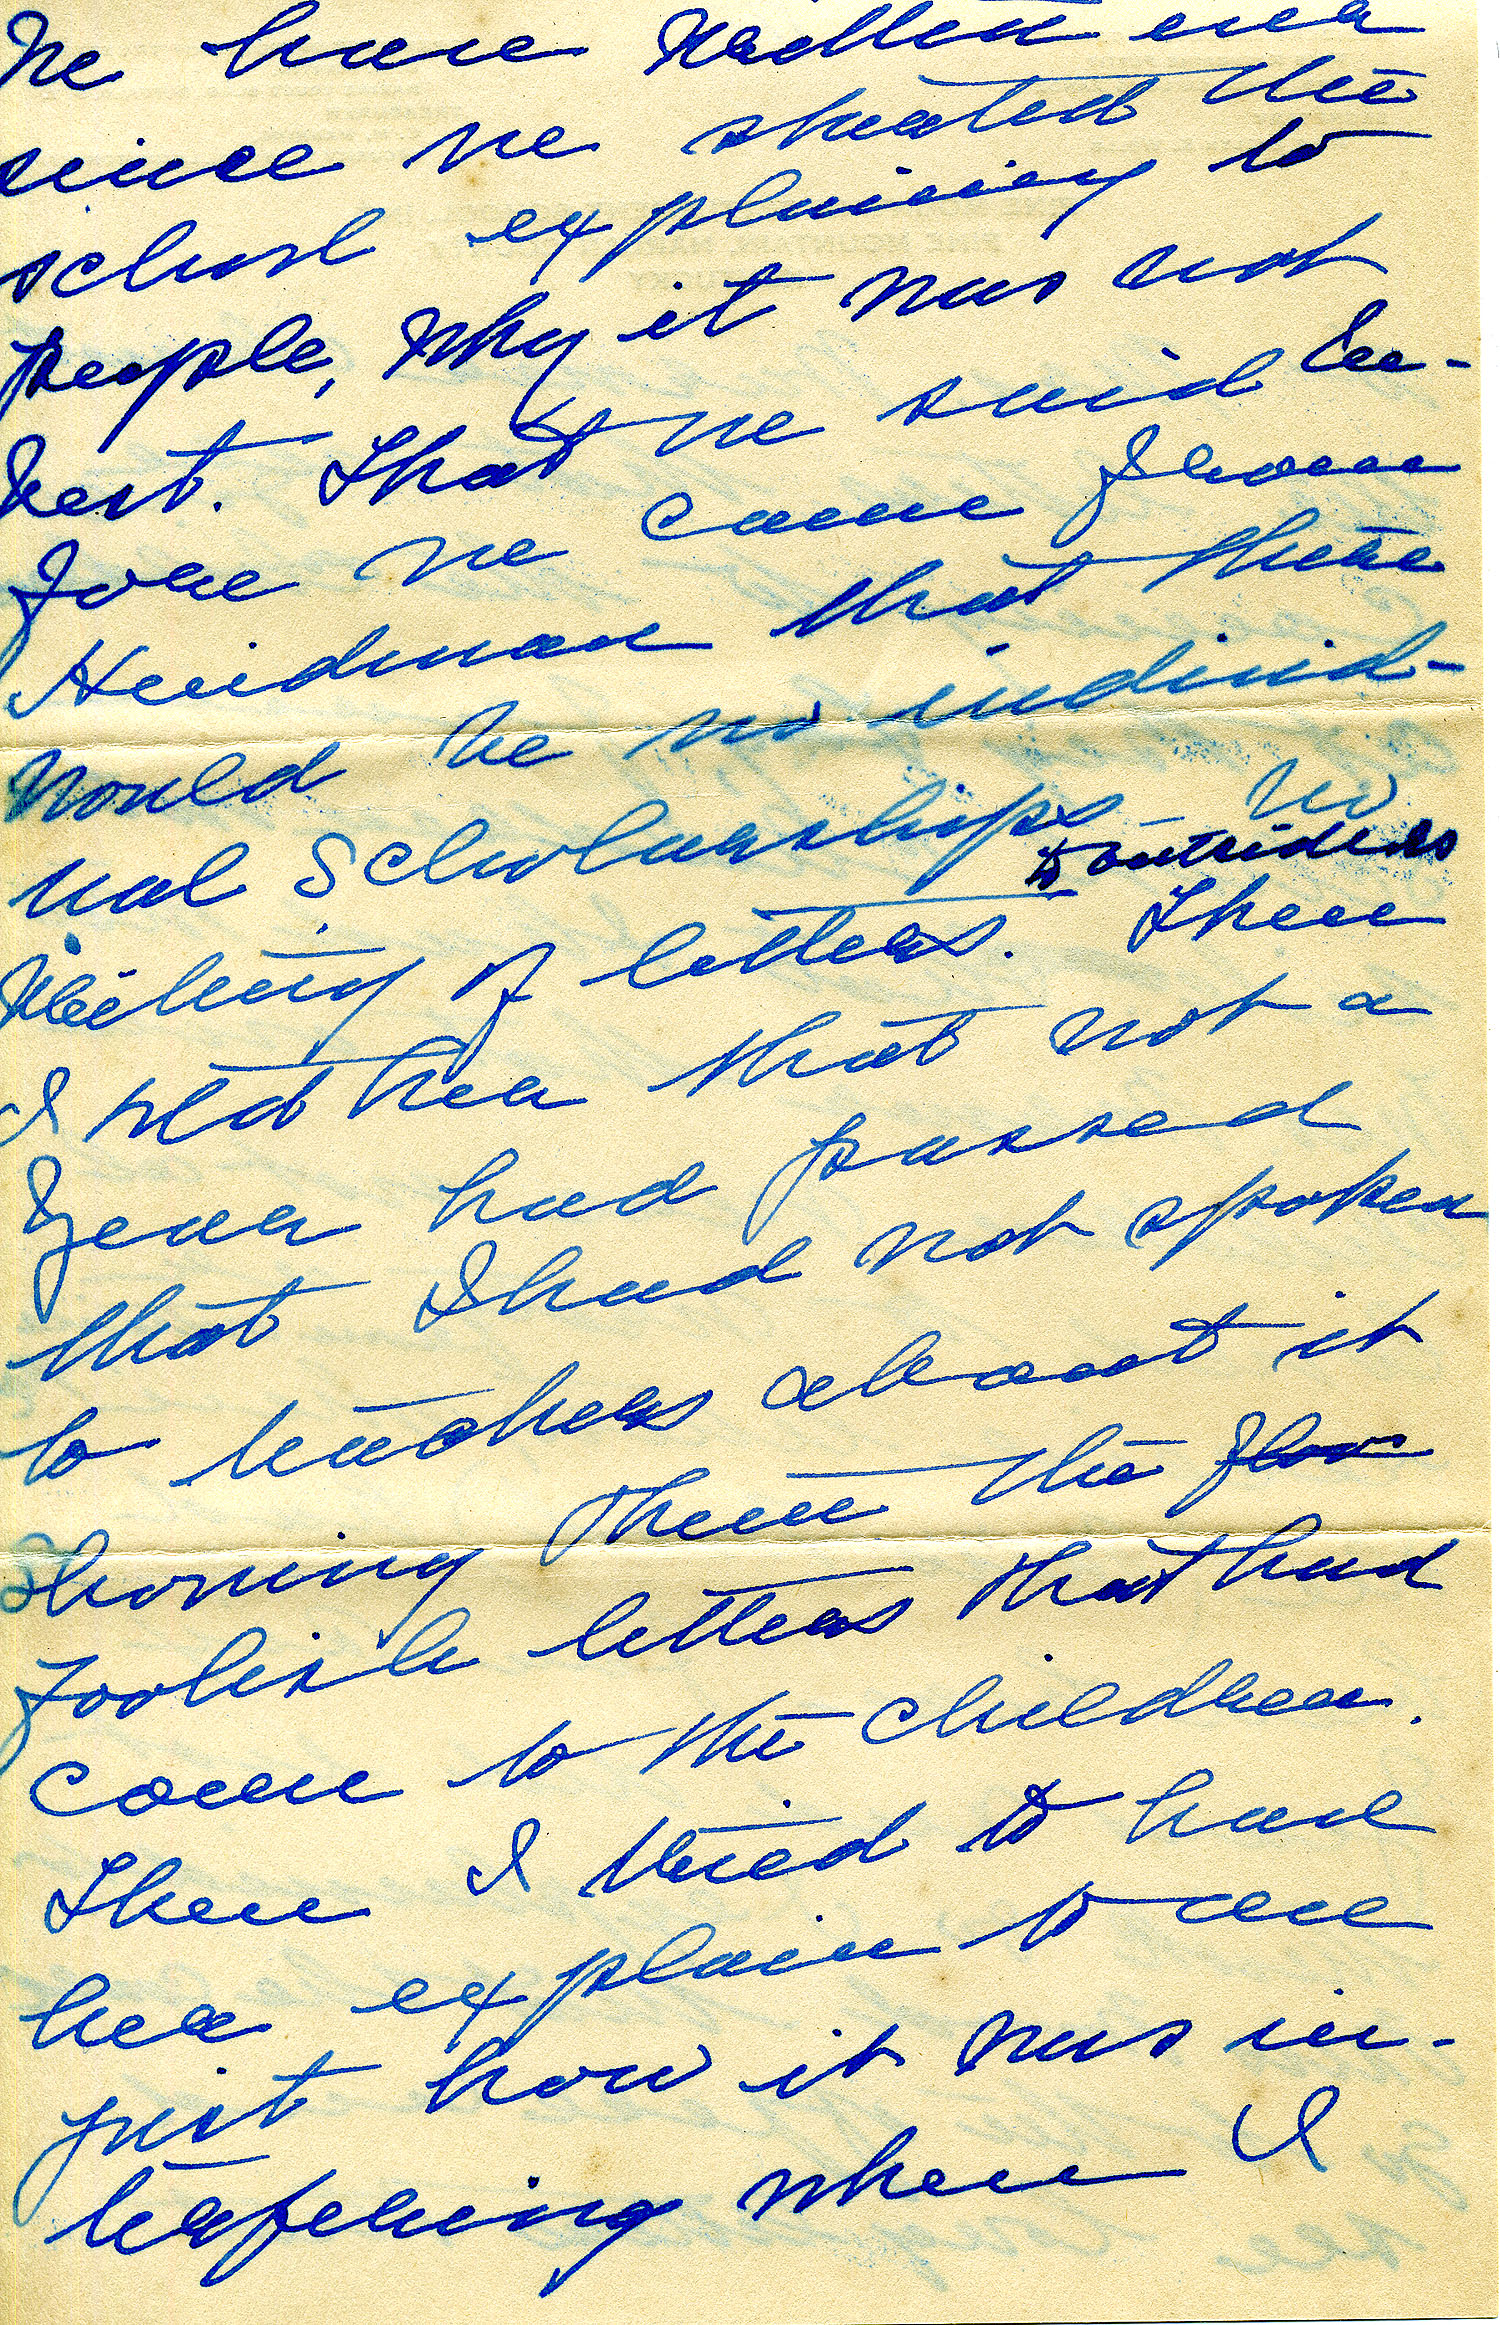 We have written ever
since we started the
school explaining to
people, why it was not
best. That we said be-
fore we came from
Hindman that there
would be no individ-
ual Scholarships no
to outsiders
writing of letters. Then
I told her that not a
Year had passed
that I had not spoken
to teachers about it
showing them the
foolish letters that had
come to the children.
Then I tried to have
her explain to me
just how it was in-
terfering when I